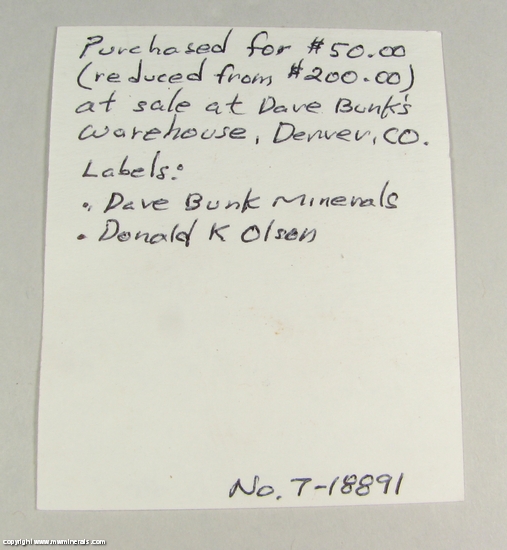 Purchased for $50.00
(reduced from $200.00)
at sale at Dave Bunk's
warehouse, Denver, CO.
Labels:
• Dave Bunk Minerals
• Donald K Olsen
No. 7-18891
copyright www.mwminerals.com